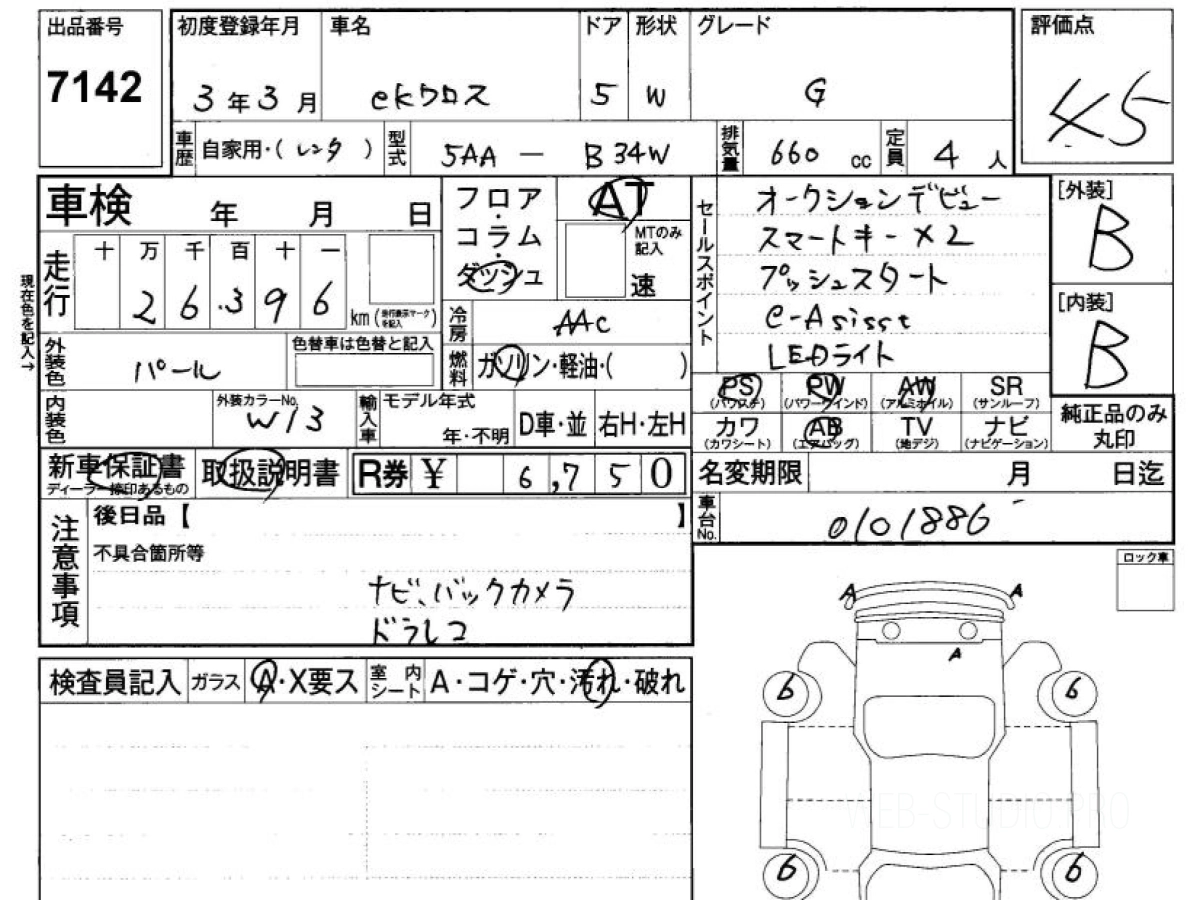 出品番号
7142
初度登録年月 車名 ドア 形状 グレード
3年3月 ekクロス 5 W G
評価点
4.5
車歴 自家用・(レンタ) 型式 5AA — B34W 排気量 660 cc 定員 4人
車検 年 月 日
フロア・コラム・ダッシュ
AT
MTのみ記入
速
セールスポイント
オークションデビュー
スマートキー×2
プッシュスタート
e-Asisst
LEDライト
[外装]
B
[内装]
B
現在色を記入→
走行 十 万 千 百 十 一
2 6.3 9 6 km(走行表示マークを記入)
冷房 AAC
燃料 ガソリン・軽油・( )
外装色 パール
色替車は色替と記入
内装色
外装カラーNo.
W13
輸入車 モデル年式
年・不明
D車・並 右H・左H
PS (パワステ) PW (パワーウインド) AW (アルミホイル) SR (サンルーフ)
カワ (カワシート) AB (エアバッグ) TV (地デジ) ナビ (ナビゲーション)
純正品のみ丸印
新車保証書
ディーラー捺印あるもの
取扱説明書
R券 ¥ 6,750
名変期限 月 日迄
車台No. 0101886
注意事項
後日品【 】
不具合箇所等
ナビ、バックカメラ
ドラレコ
ロック車
検査員記入 ガラス A・X要ス 室内シート A・コゲ・穴・汚れ・破れ
A A
A
6 6
6 6
WEB-STUDIO.PRO